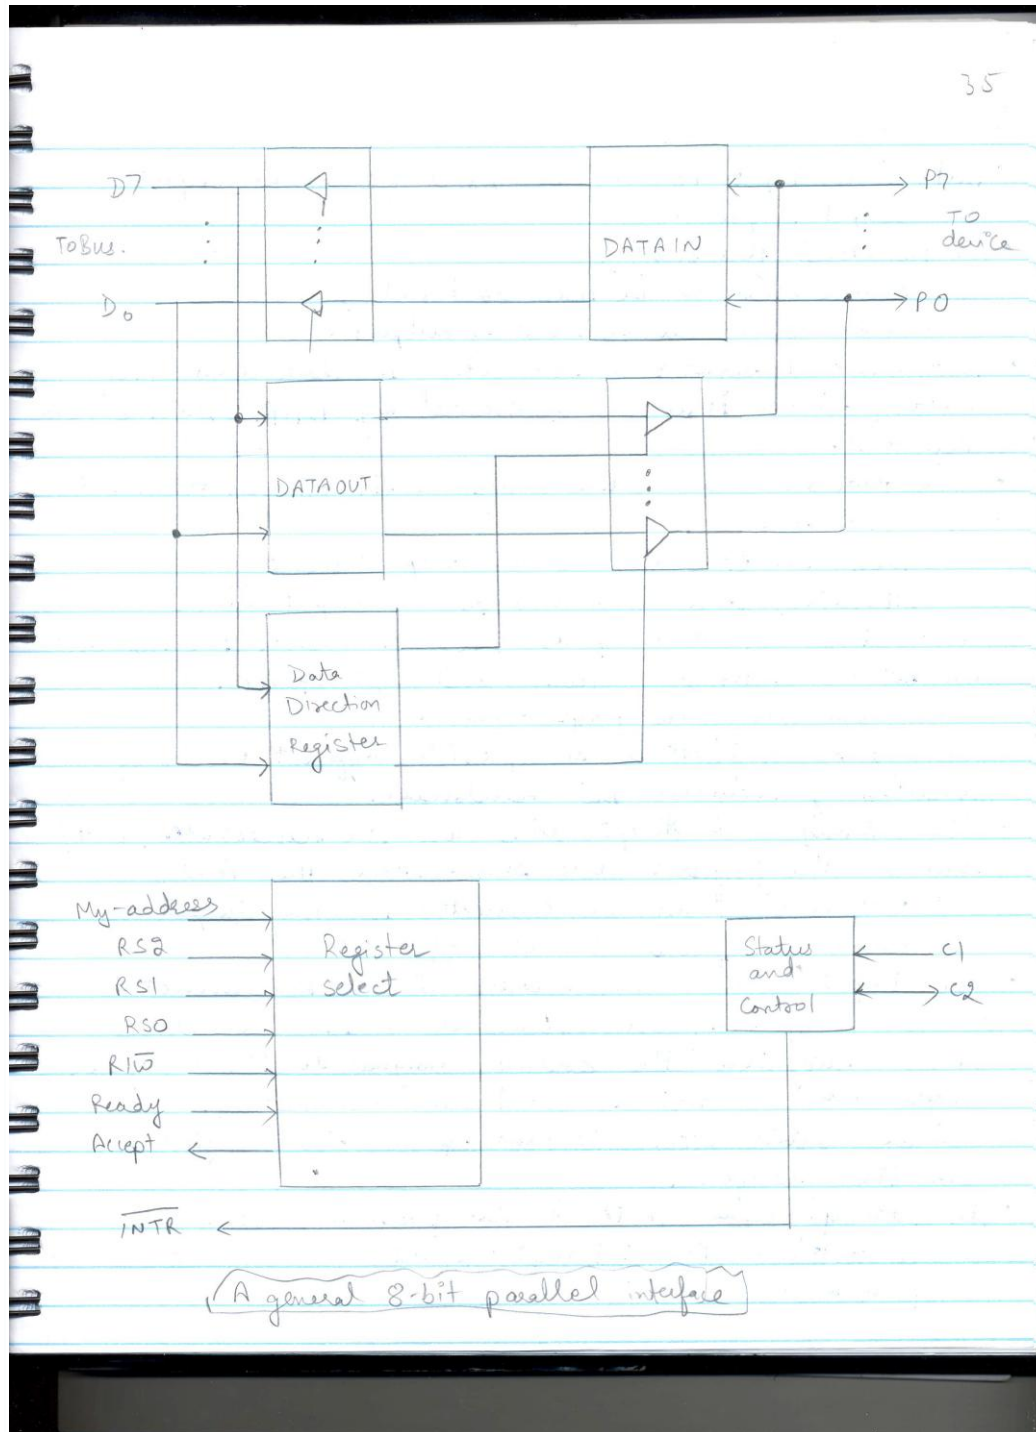 35
D7
P7
To Bus.
TO
device
DATAIN
D0
P0
DATAOUT
Data
Direction
Register
My-address
RS2
RS1
RS0
R/W̅
Ready
Accept
I̅N̅T̅R̅
Register
select
Status
and
Control
C1
C2
A general 8-bit parallel interface